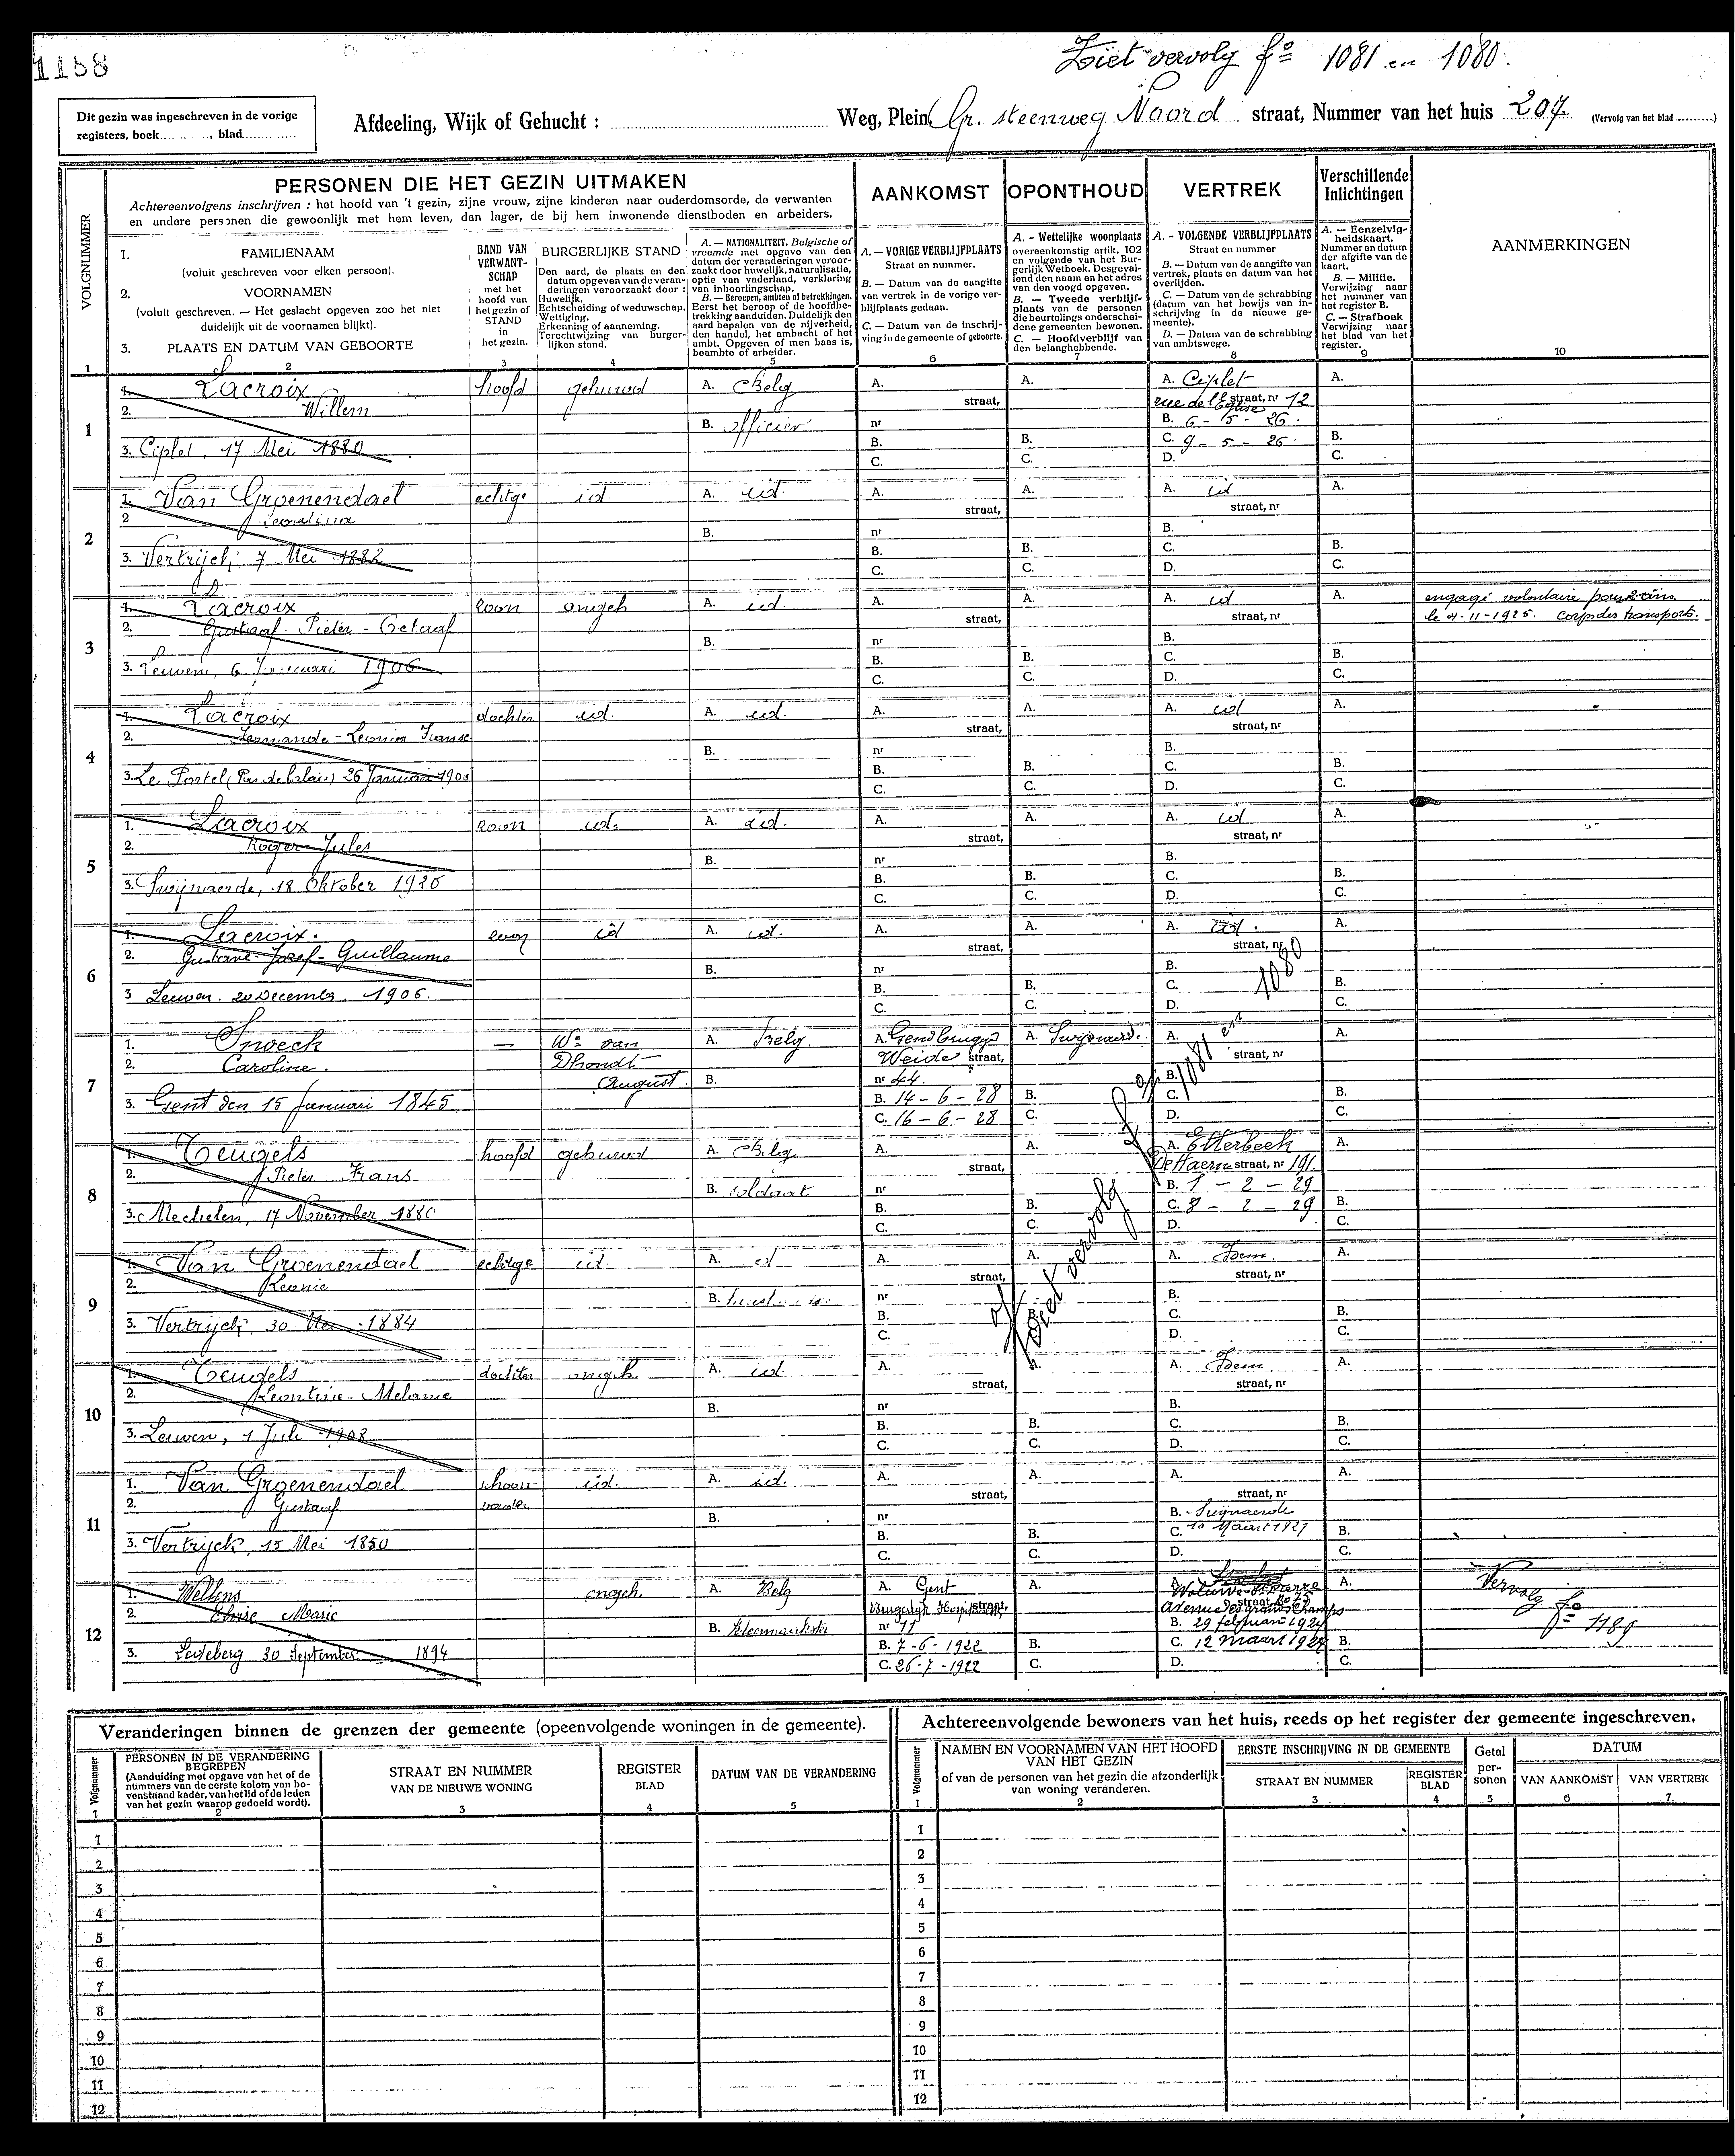 1188
Ziet vervolg fº 1081 en 1080.
Dit gezin was ingeschreven in de vorige
registers, boek.........., blad............
Afdeeling, Wijk of Gehucht :
Weg, Plein, Gr. steenweg Noord straat, Nummer van het huis 207. (Vervolg van het blad .........)
VOLGNUMMER
PERSONEN DIE HET GEZIN UITMAKEN
Achtereenvolgens inschrijven : het hoofd van 't gezin, zijne vrouw, zijne kinderen naar ouderdomsorde, de verwanten
en andere personen die gewoonlijk met hem leven, dan lager, de bij hem inwonende dienstboden en arbeiders.
1. FAMILIENAAM
(voluit geschreven voor elken persoon).
2. VOORNAMEN
(voluit geschreven. — Het geslacht opgeven zoo het niet
duidelijk uit de voornamen blijkt).
3. PLAATS EN DATUM VAN GEBOORTE
BAND VAN
VERWANT-
SCHAP
met het
hoofd van
het gezin of
STAND
in
het gezin.
BURGERLIJKE STAND
Den aard, de plaats en den
datum opgeven van de veran-
deringen veroorzaakt door :
Huwelijk.
Echtscheiding of weduwschap.
Wettiging.
Erkenning of aanneming.
Terechtwijzing van burger-
lijken stand.
A. — NATIONALITEIT. Belgische of
vreemde met opgave van den
datum der veranderingen veroor-
zaakt door huwelijk, naturalisatie,
optie van vaderland, verklaring
van inboorlingschap.
B. — Beroepen, ambten of betrekkingen.
Eerst het beroep of de hoofdbe-
trekking aanduiden. Duidelijk den
aard bepalen van de nijverheid,
den handel, het ambacht of het
ambt. Opgeven of men baas is,
beambte of arbeider.
AANKOMST
A. — VORIGE VERBLIJFPLAATS
Straat en nummer.
B. — Datum van de aangifte
van vertrek in de vorige ver-
blijfplaats gedaan.
C. — Datum van de inschrij-
ving in de gemeente of geboorte.
OPONTHOUD
A. - Wettelijke woonplaats
overeenkomstig artik. 102
en volgende van het Bur-
gerlijk Wetboek. Desgeval-
lend den naam en het adres
van den voogd opgeven.
B. — Tweede verblijf-
plaats van de personen
die beurtelings onderschei-
dene gemeenten bewonen.
C. — Hoofdverblijf van
den belanghebbende.
VERTREK
A. - VOLGENDE VERBLIJFPLAATS
Straat en nummer
B. — Datum van de aangifte van
vertrek, plaats en datum van het
overlijden.
C. — Datum van de schrabbing
(datum van het bewijs van in-
schrijving in de nieuwe ge-
meente).
D. — Datum van de schrabbing
van ambtswege.
Verschillende
Inlichtingen
A. — Eenzelvig-
heidskaart.
Nummer en datum
der afgifte van de
kaart.
B. — Militie.
Verwijzing naar
het nummer van
het register B.
C. — Strafboek
Verwijzing naar
het blad van het
register.
AANMERKINGEN
1 2 3 4 5 6 7 8 9 10
1
1. Lacroix hoofd gehuwd A. Belg A. A. A. Ciplet A.
2. Willem straat, rue de l'Eglise straat, nr 12
B. officier nr B. 6 - 5 - 26.
3. Ciplet, 17 Mei 1880 B. B. C. 9 - 5 - 26. B.
C. C. D. C.
2
1. Van Groenendael echtge id. A. id. A. A. A. id A.
2 Leontina straat, straat, nr
B. nr B.
3. Vertrijck, 7 Mei 1882 B. B. C. B.
C. C. D. C.
3
1. Lacroix zoon ongeh A. id. A. A. A. id A. engagé volontaire pour 2 ans
2. Gustaaf - Pieter - straat, straat, nr le 4-11-1925. corps des transports.
B. nr B.
3. Leuven, 6 Januari 1906 B. B. C. B.
C. C. D. C.
4
1. Lacroix dochter id. A. id. A. A. A. id A.
2. Fernande - Leonia straat, straat, nr
B. nr B.
3. Le Portel (Pas de Calais) 26 Januari B. B. C. B.
C. C. D. C.
5
1. Lacroix zoon id. A. id. A. A. A. id A.
2. Roger - Jules straat, straat, nr
B. nr B.
3. Swijnaerde, 18 Oktober 1920 B. B. C. B.
C. C. D. C.
6
1. Lacroix. zoon id A. id. A. A. A. id. A.
2. Gustave - Jozef - Guillaume straat, straat, nr
B. nr B.
3 Leuven. 20 December. 1906. B. B. C. B.
C. C. D. C.
7
1. Snoeck — We van A. Belg. A. Gendbrugge A. Swijnaerde. A. A.
2. Caroline. Dhondt Weide straat, straat, nr
August. B. nr 44. B.
3. Gent den 15 Januari 1845 B. 14 - 6 - 28 B. C. B.
C. 16 - 6 - 28 C. D. C.
ziet vervolg op fº 1081 en 1080
8
1. Teugels hoofd gehuwd A. Belg A. A. A. Etterbeek A.
2. Pieter Frans straat, De Haerne straat, nr 191.
B. soldaat nr B. 1 - 2 - 29
3. Mechelen, 17 November 1880 B. B. C. 8 - 2 - 29 B.
C. C. D. C.
9
1. Van Groenendael echtge id. A. id A. A. A. Idem. A.
2. Leonie straat, straat, nr
B. nr B.
3. Vertrijck, 30 Mei 1884 B. B. C. B.
C. D. C.
10
1. Teugels dochter ongeh. A. id. A. A. A. Idem A.
2. Leontine - Melanie straat, straat, nr
B. nr B.
3. Leuven, 1 Juli 1908 B. B. C. B.
C. C. D. C.
11
1. Van Groenendael schoon- id. A. id. A. A. A. A.
2. Gustaaf vader straat, straat, nr
B. nr B. Swijnaerde
3. Vertrijck, 15 Mei 1850 B. B. C. 10 Maart 1927 B.
C. C. D. C.
12
1. Wellens ongeh. A. Belg A. Gent A. A. Woluwe-St Pierre A. Vervolg
2. Elvire Marie Burgerlijk straat, Avenue des grands Champs straat, nr fº 1189
B. Kleermaakster nr 11 B. 29 februari 1924
3. Ledeberg 30 September 1894 B. 7-6-1922 B. C. 12 maart 1924 B.
C. 26-7-1922 C. D. C.
Veranderingen binnen de grenzen der gemeente (opeenvolgende woningen in de gemeente).
Volgnummer
PERSONEN IN DE VERANDERING
BEGREPEN
(Aanduiding met opgave van het of de
nummers van de eerste kolom van bo-
venstaand kader, van het lid of de leden
van het gezin waarop gedoeld wordt).
STRAAT EN NUMMER
VAN DE NIEUWE WONING
REGISTER
BLAD
DATUM VAN DE VERANDERING
1 2 3 4 5
1
2
3
4
5
6
7
8
9
10
11
12
Achtereenvolgende bewoners van het huis, reeds op het register der gemeente ingeschreven.
Volgnummer
NAMEN EN VOORNAMEN VAN HET HOOFD
VAN HET GEZIN
of van de personen van het gezin die afzonderlijk
van woning veranderen.
EERSTE INSCHRIJVING IN DE GEMEENTE
STRAAT EN NUMMER
REGISTER
BLAD
Getal
per-
sonen
DATUM
VAN AANKOMST
VAN VERTREK
1 2 3 4 5 6 7
1
2
3
4
5
6
7
8
9
10
11
12